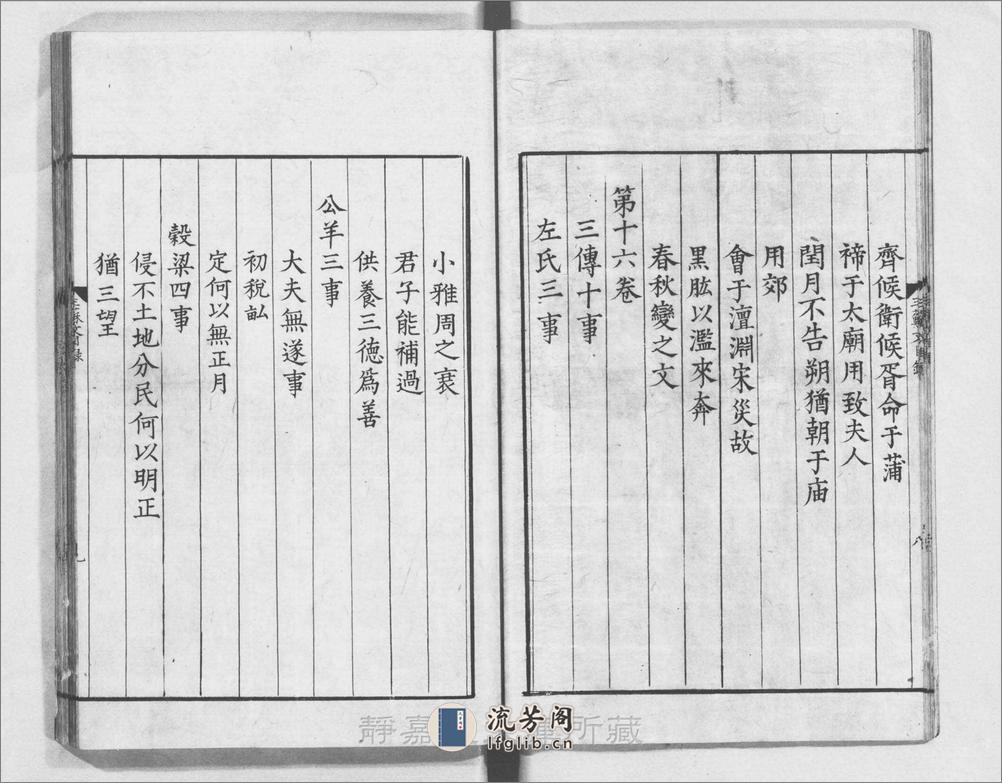 齊候衛候胥命于蒲
禘于太廟用致夫人
閏月不告朔猶朝于庙
用郊
會于澶淵宋災故
黑肱以濫來奔
春秋變之文
第十六卷
三傳十事
左氏三事
小雅周之衰
君子能補過
供養三德為善
公羊三事
大夫無遂事
初稅畝
定何以無正月
穀梁四事
侵不土地分民何以明正
猶三望
靜嘉 所藏
流芳阁
lfglib.cn